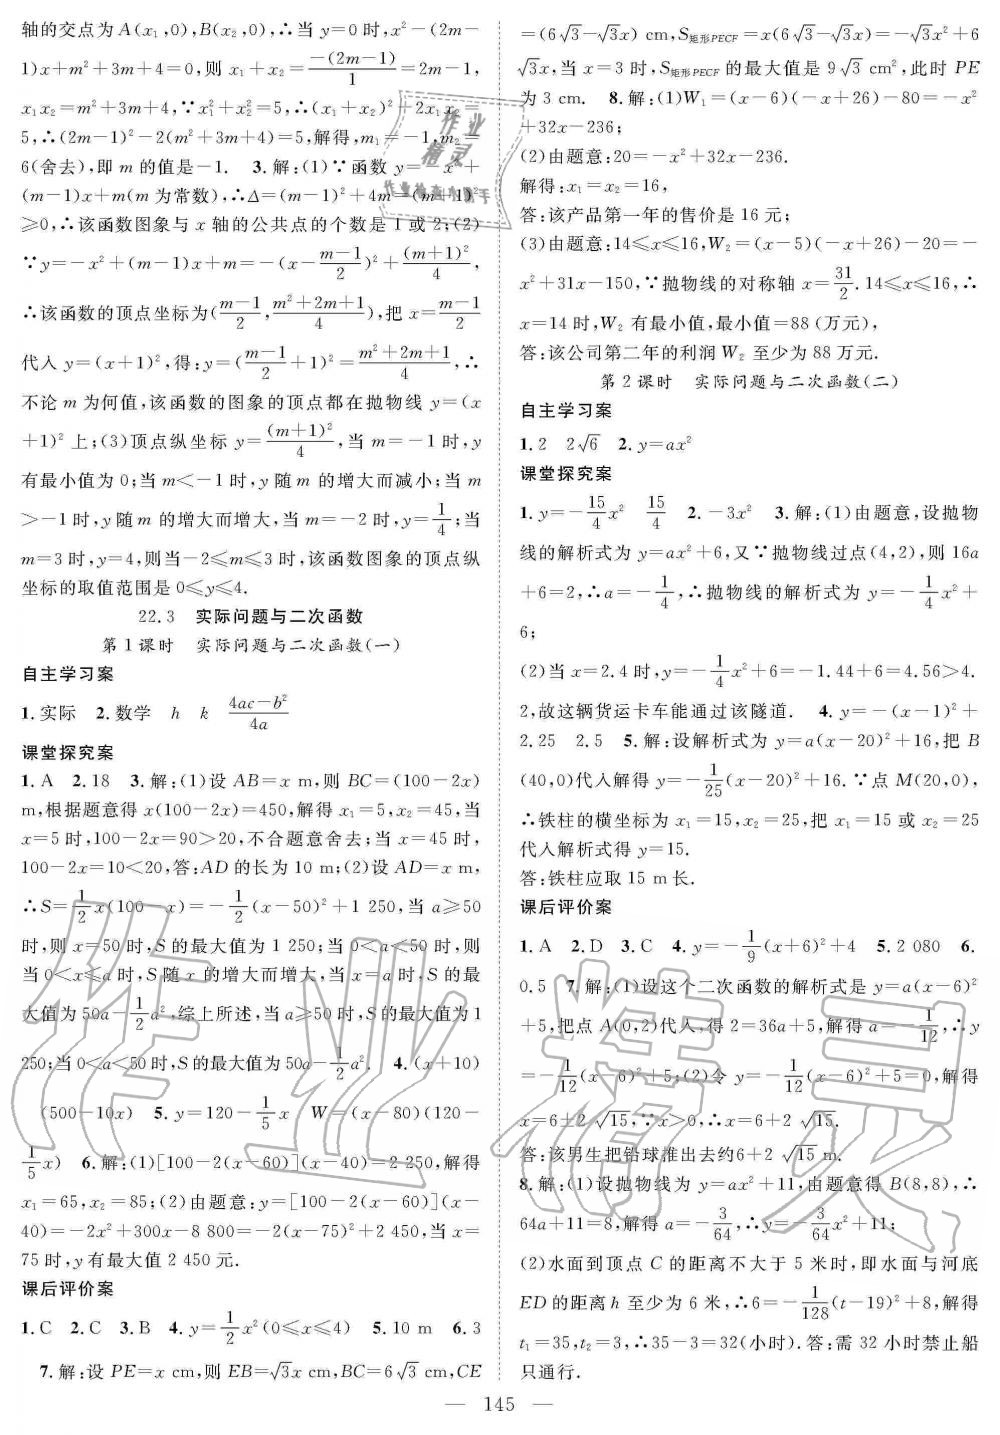 轴的交点为A(x₁,0),B(x₂,0),∴当y=0时,x²-(2m-
1)x+m²+3m+4=0,则x₁+x₂=-(2m-1)/1=2m-1,
x₁x₂=m²+3m+4,∵x₁²+x₂²=5,∴(x₁+x₂)²-2x₁x₂=
5,∴(2m-1)²-2(m²+3m+4)=5,解得,m₁=-1,m₂=
6(舍去),即m的值是-1. 3.解:(1)∵函数y=-x²+
(m-1)x+m(m为常数),∴Δ=(m-1)²+4m=(m+1)²
≥0,∴该函数图象与x轴的公共点的个数是1或2;(2)
∵y=-x²+(m-1)x+m=-(x-(m-1)/2)²+(m+1)²/4,
∴该函数的顶点坐标为((m-1)/2,(m²+2m+1)/4),把x=(m-1)/2
代入y=(x+1)²,得:y=((m-1)/2+1)²=(m²+2m+1)/4,∴
不论m为何值,该函数的图象的顶点都在抛物线y=(x
+1)²上;(3)顶点纵坐标y=(m+1)²/4,当m=-1时,y
有最小值为0;当m<-1时,y随m的增大而减小;当m
>-1时,y随m的增大而增大,当m=-2时,y=1/4;当
m=3时,y=4,则当-2≤m≤3时,该函数图象的顶点纵
坐标的取值范围是0≤y≤4.
22.3 实际问题与二次函数
第1课时 实际问题与二次函数(一)
自主学习案
1.实际 2.数学 h k (4ac-b²)/4a
课堂探究案
1.A 2.18 3.解:(1)设AB=x m,则BC=(100-2x)
m,根据题意得x(100-2x)=450,解得x₁=5,x₂=45,当
x=5时,100-2x=90>20,不合题意舍去;当x=45时,
100-2x=10<20,答:AD的长为10 m;(2)设AD=x m,
∴S=1/2x(100-x)=-1/2(x-50)²+1 250,当a≥50
时,则x=50时,S的最大值为1 250;当0<a<50时,则
当0<x≤a时,S随x的增大而增大,当x=a时,S的最
大值为50a-1/2a²,综上所述,当a≥50时,S的最大值为1
250;当0<a<50时,S的最大值为50a-1/2a². 4.(x+10)
(500-10x) 5.y=120-1/5x W=(x-80)(120-
1/5x) 6.解:(1)[100-2(x-60)](x-40)=2 250,解得
x₁=65,x₂=85;(2)由题意:y=[100-2(x-60)](x-
40)=-2x²+300x-8 800=-2(x-75)²+2 450,当x=
75时,y有最大值2 450元.
课后评价案
1.C 2.C 3.B 4.y=1/2x²(0≤x≤4) 5.10 m 6.3
7.解:设PE=x cm,则EB=√3x cm,BC=6√3 cm,CE
=(6√3-√3x) cm,S矩形PECF=x(6√3-√3x)=-√3x²+6
√3x,当x=3时,S矩形PECF的最大值是9√3 cm²,此时PE
为3 cm. 8.解:(1)W₁=(x-6)(-x+26)-80=-x²
+32x-236;
(2)由题意:20=-x²+32x-236.
解得:x₁=x₂=16,
答:该产品第一年的售价是16元;
(3)由题意:14≤x≤16,W₂=(x-5)(-x+26)-20=-
x²+31x-150,∵抛物线的对称轴x=31/2.14≤x≤16,∴
x=14时,W₂有最小值,最小值=88(万元),
答:该公司第二年的利润W₂至少为88万元.
第2课时 实际问题与二次函数(二)
自主学习案
1.2 2√6 2.y=ax²
课堂探究案
1.y=-15/4x² 15/4 2.-3x² 3.解:(1)由题意,设抛物
线的解析式为y=ax²+6,又∵抛物线过点(4,2),则16a
+6=2,∴a=-1/4,∴抛物线的解析式为y=-1/4x²+
6;
(2)当x=2.4时,y=-1/4x²+6=-1.44+6=4.56>4.
2,故这辆货运卡车能通过该隧道. 4.y=-(x-1)²+
2.25 2.5 5.解:设解析式为y=a(x-20)²+16,把B
(40,0)代入解得y=-1/25(x-20)²+16.∵点M(20,0),
∴铁柱的横坐标为x₁=15,x₂=25,把x₁=15或x₂=25
代入解析式得y=15.
答:铁柱应取15 m长.
课后评价案
1.A 2.D 3.C 4.y=-1/9(x+6)²+4 5.2 080 6.
0.5 7.解:(1)设这个二次函数的解析式是y=a(x-6)²
+5,把点A(0,2)代入,得2=36a+5,解得a=-1/12,∴y
=-1/12(x-6)²+5;(2)令y=-1/12(x-6)²+5=0,解得
x=6±2√15,∵x>0,∴x=6+2√15.
答:该男生把铅球推出去约6+2√15 m.
8.解:(1)设抛物线为y=ax²+11,由题意得B(8,8),∴
64a+11=8,解得a=-3/64,∴y=-3/64x²+11;
(2)水面到顶点C的距离不大于5米时,即水面与河底
ED的距离h至少为6米,∴6=-1/128(t-19)²+8,解得
t₁=35,t₂=3,∴35-3=32(小时).答:需32小时禁止船
只通行.
— 145 —
作业
精灵
作业精灵